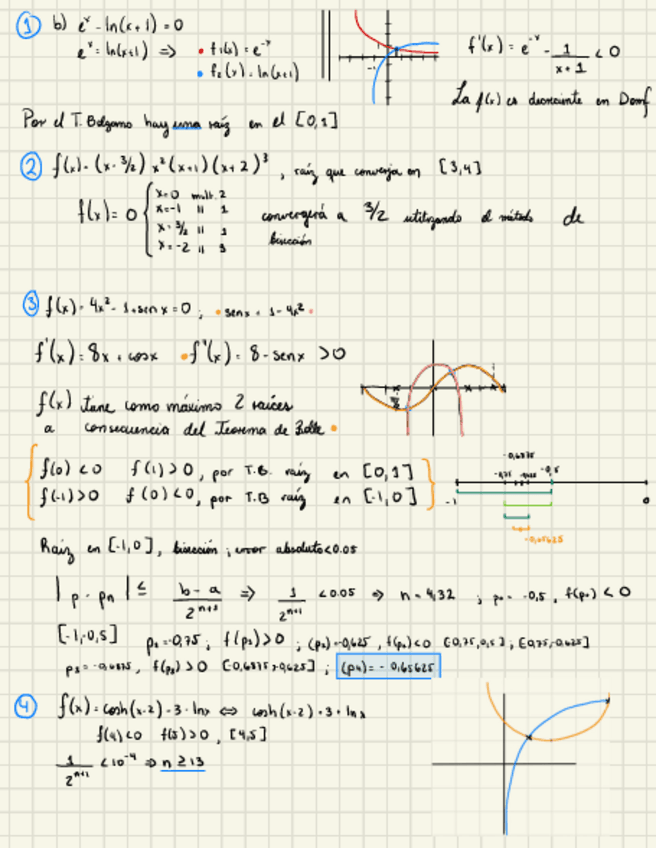 ① b) eˣ - ln(x+1) = 0
eˣ = ln(x+1) ⇒ • f₁(x) = e⁻ˣ
• f₂(x) = ln(x+1)
f'(x) = e⁻ˣ - 1/(x+1) < 0
La f(x) es decreciente en Domf
Por el T. Bolzano hay una raíz en el [0,1]
② f(x) = (x - 3/2) x² (x+1) (x+2)³, raíz que converja en [3,4]
f(x) = 0 { x=0 mult. 2
x=-1 " 1
x=3/2 " 1
x=-2 " 3
convergerá a 3/2 utilizando el método de
bisección
③ f(x) = 4x² - 1 + sen x = 0 ; • sen x = 1 - 4x² •
f'(x) = 8x + cosx • f''(x) = 8 - senx > 0
f(x) tiene como máximo 2 raíces
a consecuencia del Teorema de Rolle •
f(0) < 0 f(1) > 0, por T.B. raíz en [0,1]
f(-1) > 0 f(0) < 0, por T.B raíz en [-1,0]
-0,6875
-0,75 -0,5
-1 0
-0,65625
Raíz en [-1,0], bisección ; error absoluto < 0.05
| p - pn | ≤ (b - a)/2ⁿ⁺¹ ⇒ 1/2ⁿ⁺¹ < 0.05 ⇒ n = 4,32 ; p₀ = -0,5, f(p₀) < 0
[-1,-0,5] p₁ = -0,75 ; f(p₁) > 0 ; (p₂) = -0,625, f(p₂) < 0 [-0,75,-0,5] ; [-0,75,-0,625]
p₃ = -0,6875, f(p₃) > 0 [-0,6875,-0,625] ; (p₄) = -0,65625
④ f(x) = cosh(x-2) + 3 - lnx ⇔ cosh(x-2) + 3 = lnx
f(4) < 0 f(5) > 0, [4,5]
1/2ⁿ⁺¹ < 10⁻⁴ ⇒ n ≥ 13